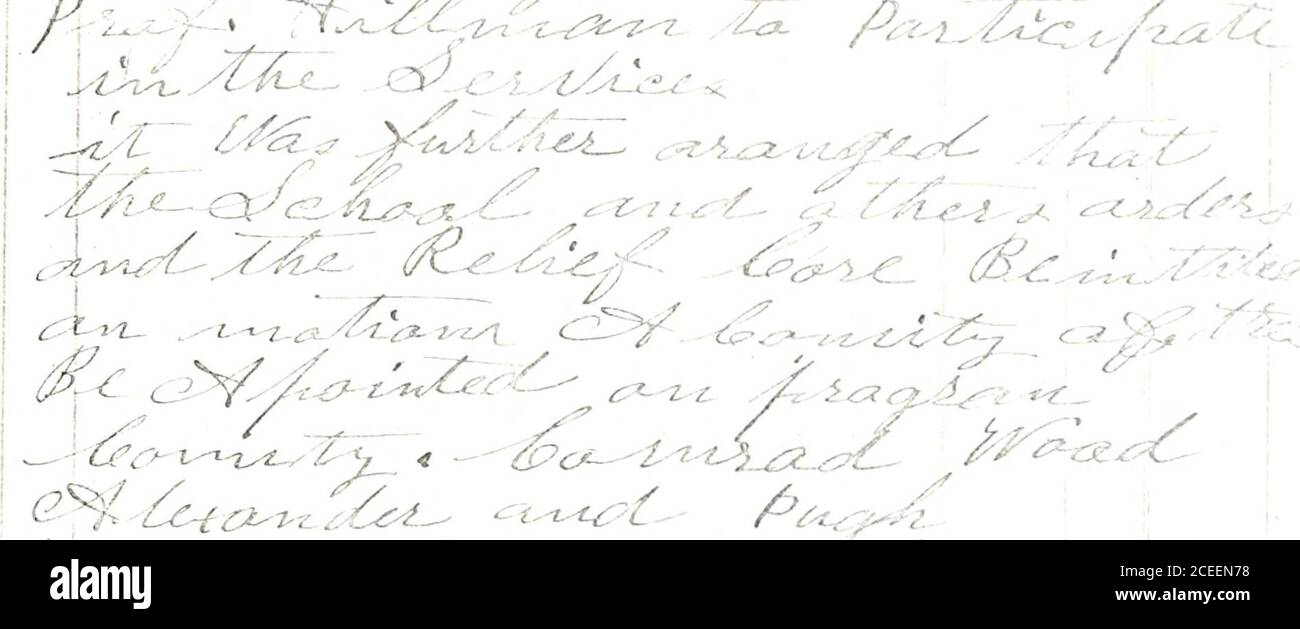 Prof. Hillman to Participate
in the Services
it Was further aranged that
the School and others orders
and the Relief Core Be invited
on motion A Comity of three
Be Apointed on progran
Comity. Comrad Wood
Alexander and Pugh
alamy
Image ID: 2CEEN78
www.alamy.com